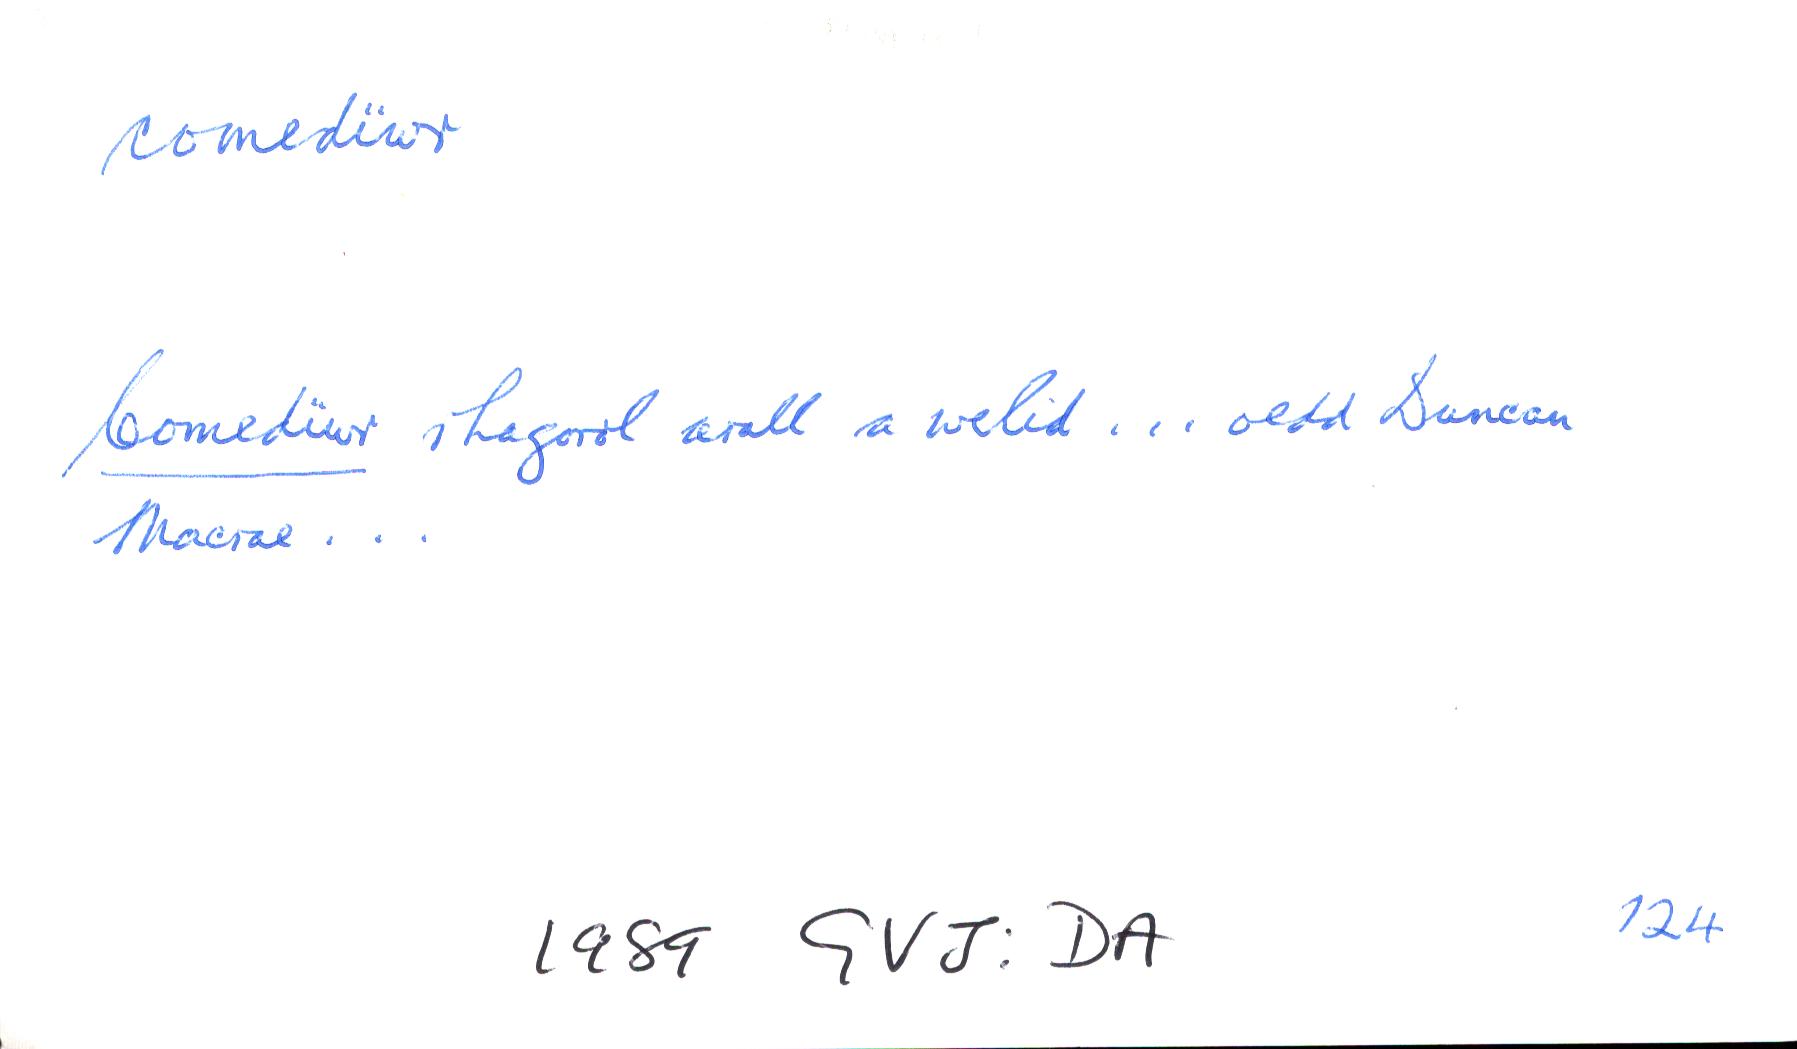 comedïwr
Comedïwr rhagorol arall a welid ... oedd Duncan
Macrae ...
1989 GVJ: DA
124